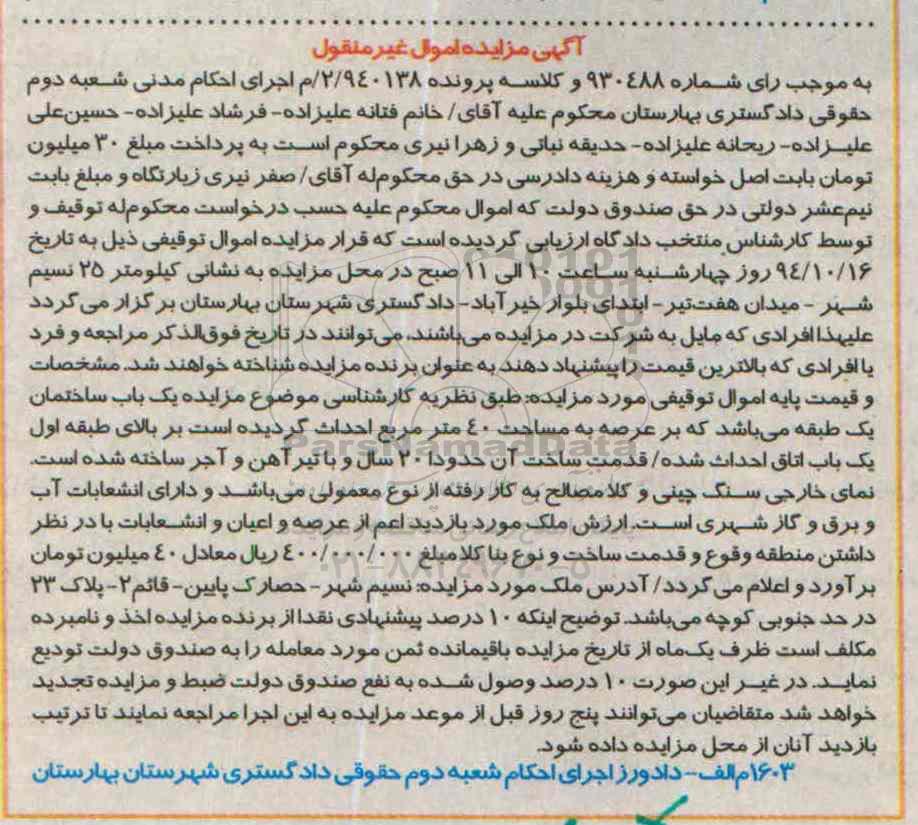 آگهی مزایده اموال غیر منقول
به موجب رای شماره ۹۳۰۴۸۸ و کلاسه پرونده ۲/۹۴۰۱۳۸/م اجرای احکام مدنی شعبه دوم
حقوقی دادگستری بهارستان محکوم علیه آقای/ خانم فتانه علیزاده- فرشاد علیزاده- حسین‌علی
علیزاده- ریحانه علیزاده- حدیقه نباتی و زهرا نیری محکوم است به پرداخت مبلغ ۳۰ میلیون
تومان بابت اصل خواسته و هزینه دادرسی در حق محکوم‌له آقای/ صفر نیری زیارتگاه و مبلغ بابت
نیم‌عشر دولتی در حق صندوق دولت که اموال محکوم علیه حسب درخواست محکوم‌له توقیف و
توسط کارشناس منتخب دادگاه ارزیابی گردیده است که قرار مزایده اموال توقیفی ذیل به تاریخ
۹۴/۱۰/۱۶ روز چهارشنبه ساعت ۱۰ الی ۱۱ صبح در محل مزایده به نشانی کیلومتر ۲۵ نسیم
شهر - میدان هفت‌تیر- ابتدای بلوار خیرآباد- دادگستری شهرستان بهارستان برگزار می‌گردد
علیهذا افرادی که مایل به شرکت در مزایده می‌باشند، می‌توانند در تاریخ فوق‌الذکر مراجعه و فرد
یا افرادی که بالاترین قیمت را پیشنهاد دهند به عنوان برنده مزایده شناخته خواهند شد. مشخصات
و قیمت پایه اموال توقیفی مورد مزایده: طبق نظریه کارشناسی موضوع مزایده یک باب ساختمان
یک طبقه می‌باشد که بر عرصه به مساحت ۴۰ متر مربع احداث گردیده است بر بالای طبقه اول
یک باب اتاق احداث شده/ قدمت ساخت آن حدودا ۲۰ سال و با تیرآهن و آجر ساخته شده است.
نمای خارجی سنگ چینی و کلا مصالح به کار رفته از نوع معمولی می‌باشد و دارای انشعابات آب
و برق و گاز شهری است. ارزش ملک مورد بازدید اعم از عرصه و اعیان و انشعابات با در نظر
داشتن منطقه وقوع و قدمت ساخت و نوع بنا کلا مبلغ ۴۰۰/۰۰۰/۰۰۰ ریال معادل ۴۰ میلیون تومان
برآورد و اعلام می‌گردد/ آدرس ملک مورد مزایده: نسیم شهر- حصارک پایین- قائم۲- پلاک ۲۳
در حد جنوبی کوچه می‌باشد. توضیح اینکه ۱۰ درصد پیشنهادی نقدا از برنده مزایده اخذ و نامبرده
مکلف است ظرف یک‌ماه از تاریخ مزایده باقیمانده ثمن مورد معامله را به صندوق دولت تودیع
نماید. در غیر این صورت ۱۰ درصد وصول شده به نفع صندوق دولت ضبط و مزایده تجدید
خواهد شد متقاضیان می‌توانند پنج روز قبل از موعد مزایده به این اجرا مراجعه نمایند تا ترتیب
بازدید آنان از محل مزایده داده شود.
۱۶۰۳/م‌الف- دادورز اجرای احکام شعبه دوم حقوقی دادگستری شهرستان بهارستان
ParsNamadData
۰۲۱-۸۸۳۴۹۶۷۰-۵